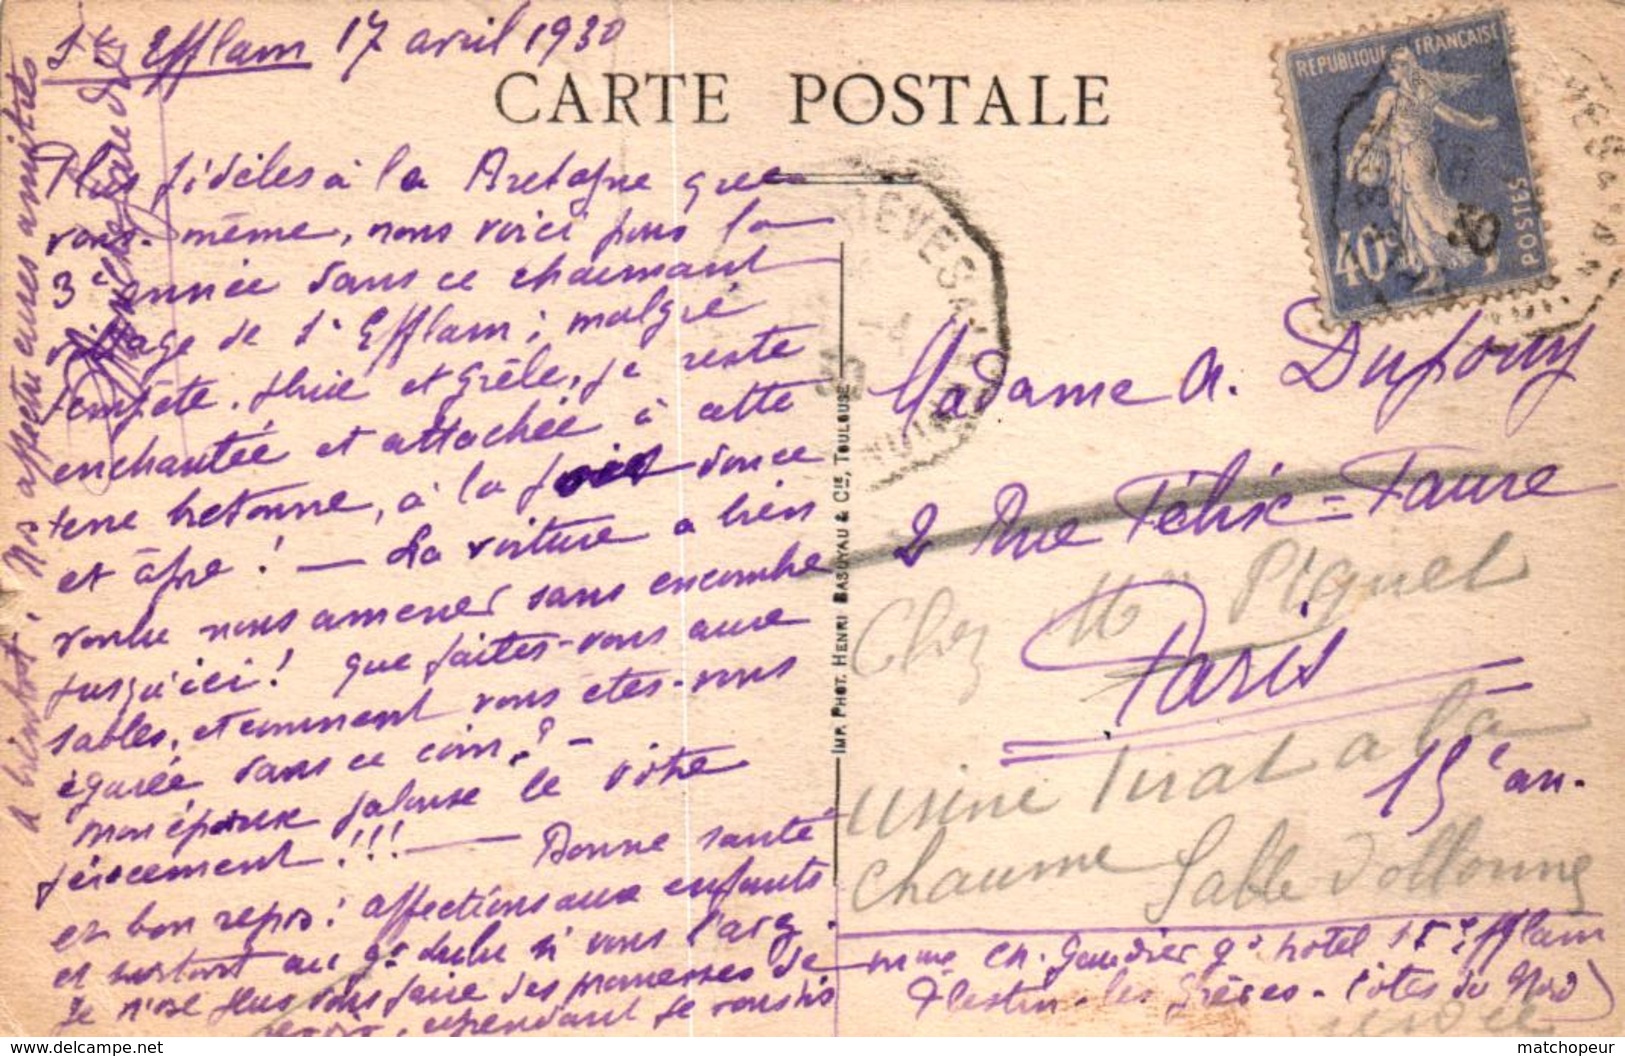 St Efflam 17 avril 1930
CARTE POSTALE
REPUBLIQUE FRANÇAISE
POSTES
40c
Plus fidèles à la Bretagne que
vous-même, nous voici pour la
3e année dans ce charmant
village de St Efflam ; malgré
tempête, pluie et grêle, je reste
enchantée et attachée à cette
terre bretonne, à la fois douce
et âpre ! — La voiture a bien
voulu nous amener sans encombre
jusqu'ici ! que faites-vous aux
sables, et comment vous êtes-vous
égarée dans ce coin ? –
mon époux jalouse le vôtre
férocement !!! — Bonne santé
et bon repos ! affections aux enfants
et surtout au gd lulu si vous l'avez.
Je n'ose plus vous faire des promesses de
cependant je vous dis
à bientôt. Nos affectueuses amitiés
IMP. PHOT. HENRI BASUYAU & CIE, TOULOUSE
Madame A. Dupouy
2 Rue Félix-Faure
Paris
15e arr.
Chez Mr Piquet
usine Tirat a la
Chaume Sable d'ollonne
Mme Ch. Gaudier gd hotel St Efflam
Plestin-les-Grèves - Côtes du Nord
matchopeur